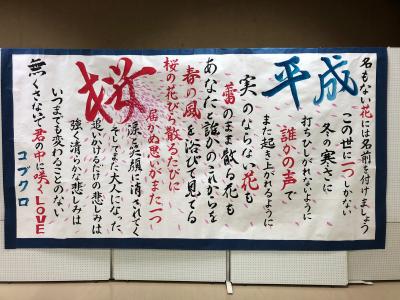 名もない花には名前を付けましょう
平成
この世に一つしかない
冬の寒さに
打ちひしがれないように
誰かの声で
また起き上がれるように
実のならない花も
蕾のまま散る花も
あなたと誰かのこれからを
春の風を浴びて見てる
桜の花びら散るたびに
桜
届かぬ思いがまた一つ
涙と笑顔に消されてく
そしてまた大人になった
追いかけるだけの悲しみは
強く清らかな悲しみは
いつまでも変わることのない
無くさないで君の中に咲くLOVE
コブクロ